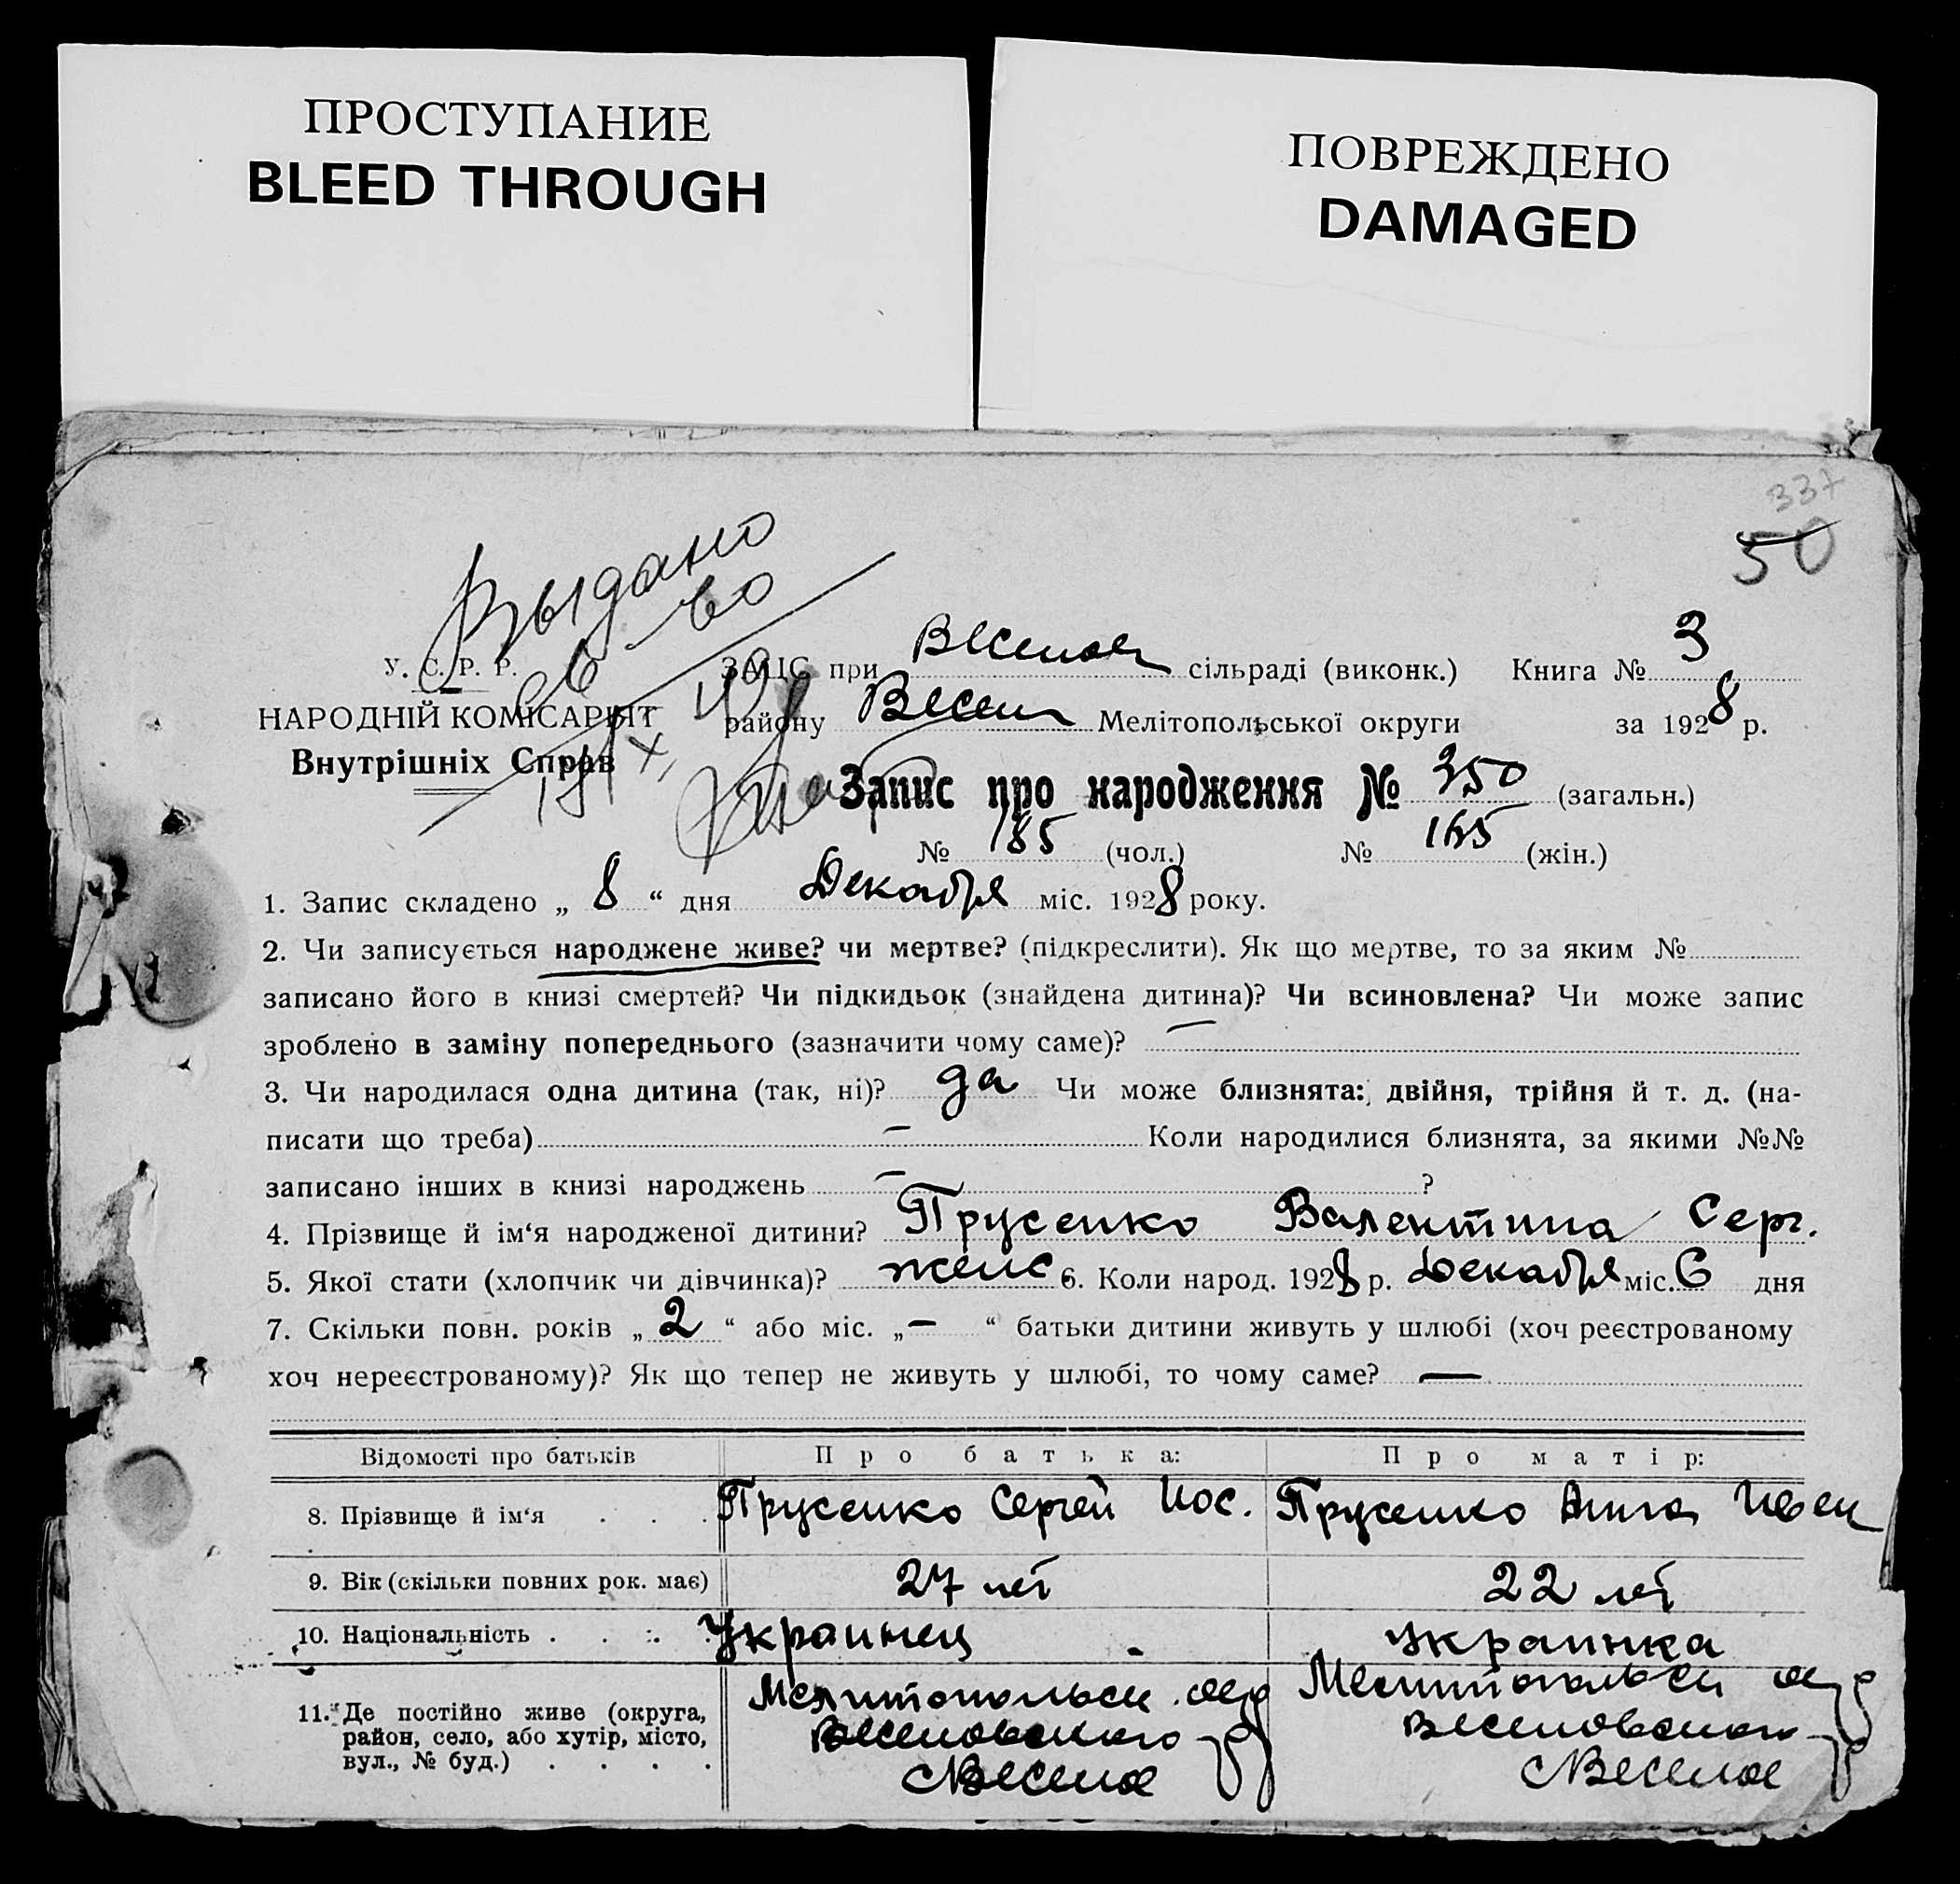 ПРОСТУПАНИЕ
BLEED THROUGH
ПОВРЕЖДЕНО
DAMAGED
337
50
Выдано
У. С. Р. Р.
НАРОДНІЙ КОМІСАРІЯТ
Внутрішніх Справ
ЗАЦС при Веселов сільраді (виконк.) Книга № 3
району Весел Мелітопольської округи за 1928 р.
Запис про народження № 350 (загальн.)
№ 185 (чол.) № 165 (жін.)
1. Запис складено „ 8 “ дня Декабря міс. 1928 року.
2. Чи записується народжене живе? чи мертве? (підкреслити). Як що мертве, то за яким №
записано його в книзі смертей? Чи підкидьок (знайдена дитина)? Чи всиновлена? Чи може запис
зроблено в заміну попереднього (зазначити чому саме)? —
3. Чи народилася одна дитина (так, ні)? да Чи може близнята: двійня, трійня й т. д. (на-
писати що треба) — Коли народилися близнята, за якими №№
записано інших в книзі народжень — ?
4. Прізвище й ім‘я народженої дитини? Прусенко Валентина Серг.
5. Якої стати (хлопчик чи дівчинка)? женс 6. Коли народ. 1928 р. Декабря міс. 6 дня
7. Скільки повн. років „ 2 “ або міс. „ — “ батьки дитини живуть у шлюбі (хоч реєстрованому
хоч нереєстрованому)? Як що тепер не живуть у шлюбі, то чому саме? —
Відомості про батьків Про батька: Про матір:
8. Прізвище й ім‘я . . . Прусенко Сергей Иос. Прусенко Анна Иван
9. Вік (скільки повних рок. має) 27 лет 22 лет
10. Національність . . . . Украинец украинка
11. Де постійно живе (округа,
район, село, або хутір, місто,
вул., № буд.) . . . .
Мелитопольск. окр
Веселовского р
с Веселое
Мелитопольск окр
Веселовского р
с Веселое